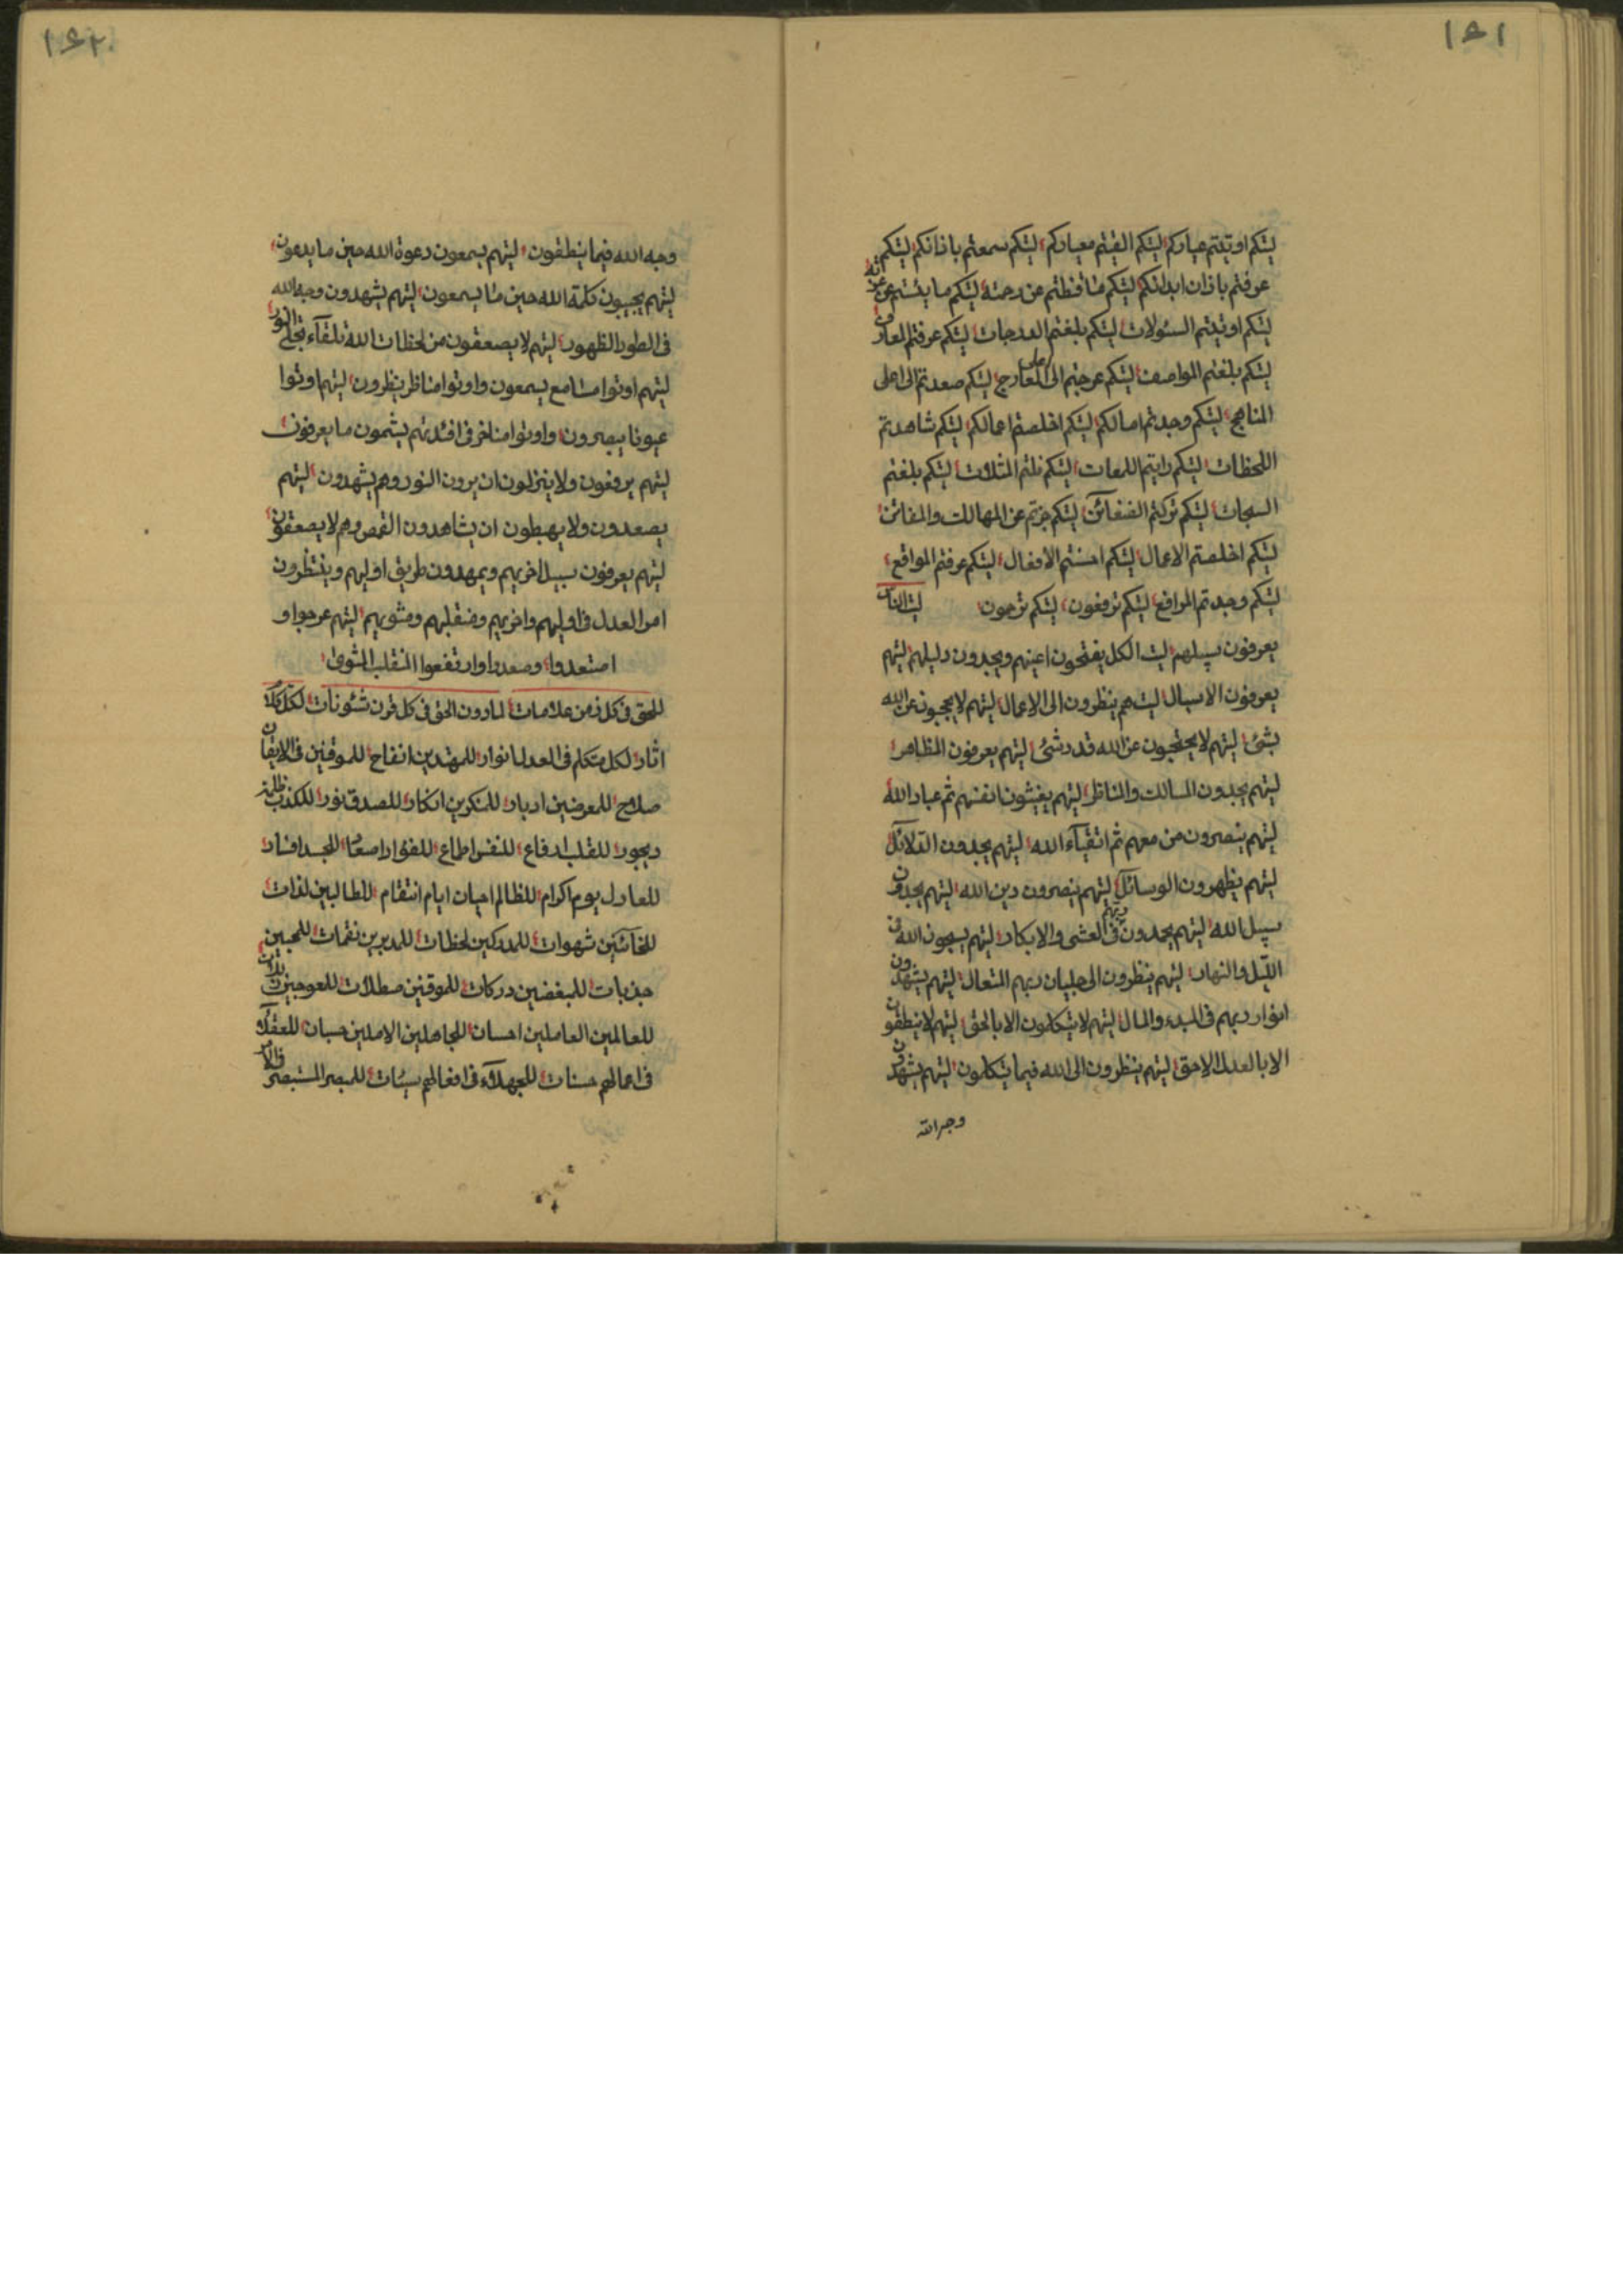 ١٤١
ليتكم اوتيتم عياركم ليتكم القيتم معياركم ليتكم سمعتم باذانكم ليتكم
عرفتم باذان ابدانكم ليتكم ما قنطتم عن رحمته ليتكم ما يئستم عن
ليتكم اوتيتم السئولات ليتكم بلغتم الدرجات ليتكم عرفتم المعارف
ليتكم بلغتم المواصف ليتكم عرجتم الى اعلى المعارج ليتكم صعدتم الى اعلى
المناهج ليتكم وجدتم امالكم ليتكم اخلصتم اعمالكم ليتكم شاهدتم
اللحظات ليتكم رايتم اللمعات ليتكم نلتم المثلات ليتكم بلغتم
السبحات ليتكم تركتم الضغائن ليتكم جزتم عن المهالك والمفائن
ليتكم اخلصتم الاعمال ليتكم احسنتم الافعال ليتكم عرفتم المواقع
ليتكم وجدتم المرافع ليتكم ترفعون ليتكم ترجون ليت الناس
يعرفون سبيلهم ليت الكل يفتحون اعينهم ويجدون دليلهم ليتهم
يعرفون الاسبال ليت هم ينظرون الى الاعمال ليتهم لا يحجبون عن الله
بشئ ليتهم لا يحتجبون عن الله قدر شئ ليتهم يعرفون المظاهر
ليتهم يجدون المسالك والمناظر ليتهم يغيثون انفسهم ثم عباد الله
ليتهم ينصرون من معهم ثم اتقياء الله ليتهم يجدون الدلائل
ليتهم يظهرون الوسائل ليتهم ينصرون دين الله ليتهم يجدون
سبيل الله ليتهم يحمدون ربهم فى العشى والابكار ليتهم يسبحون الله فى
الليل والنهار ليتهم ينظرون الى جليان ربهم المتعال ليتهم يشهدون
انوار ربهم فى المبدء والمال ليتهم لا يتكلمون الا بالحق ليتهم لا ينطقون
الا بالعدل الاحق ليتهم ينظرون الى الله فيما يتكلمون ليتهم يشهدون
وجه الله
١٤٢
وجه الله فيما ينطقون ليتهم يسمعون دعوة الله حين ما يدعون
ليتهم يجيبون كلمة الله حين ما يسمعون ليتهم يشهدون وجه الله
فى الطور الظهور ليتهم لا يصعقون من لحظات الله تلقاء تجلى النور
ليتهم اوتوا مسامع يسمعون واوتوا مناظر ينظرون ليتهم اوتوا
عيونا يبصرون واوتوا مناخر فى افئدتهم يشمون ما يعرفون
ليتهم يرفعون ولا ينزلون ان يرون النور وهم يشهدون ليتهم
يصعدون ولا يهبطون ان يشاهدون القمص وهم لا يصعقون
ليتهم يعرفون سبيل اخريهم ويمهدون طريق اوليهم وينتظرون
امر العدل فى اوليهم واخريهم ومنقلبهم ومثويهم ليتهم عرجوا و
استعدوا وصعدوا وارتفعوا المنقلب المثوى
للحق فى كل زمن علامات لمادون الحق فى كل قرن شئونات لكل كلام
اثار لكل متكلم فى العدل انوار للمهتدين انفاح للموقنين فى الايقان
صلاح للمعرضين ادبار للمنكرين انكار للصدق نور للكذب ظلمة
ديجور للقلب ادفاع للنفس اطماع للفؤاد اصعاد للجسد افساد
للعادل يوم اكرام للظالم احيان ايام انتقام للطالبين لذات
للخائنين شهوات للمدركين لحظات للمدبرين نقمات للمحبين
جذبات للمبغضين دركات للموقنين صطلات للعوجين
للعالمين العاملين احسان للجاهلين الاملين حسبان للعقلاء
فى اعمالهم حسنات للجهلاء فى افعالهم سيئات للمبصر المستبصر